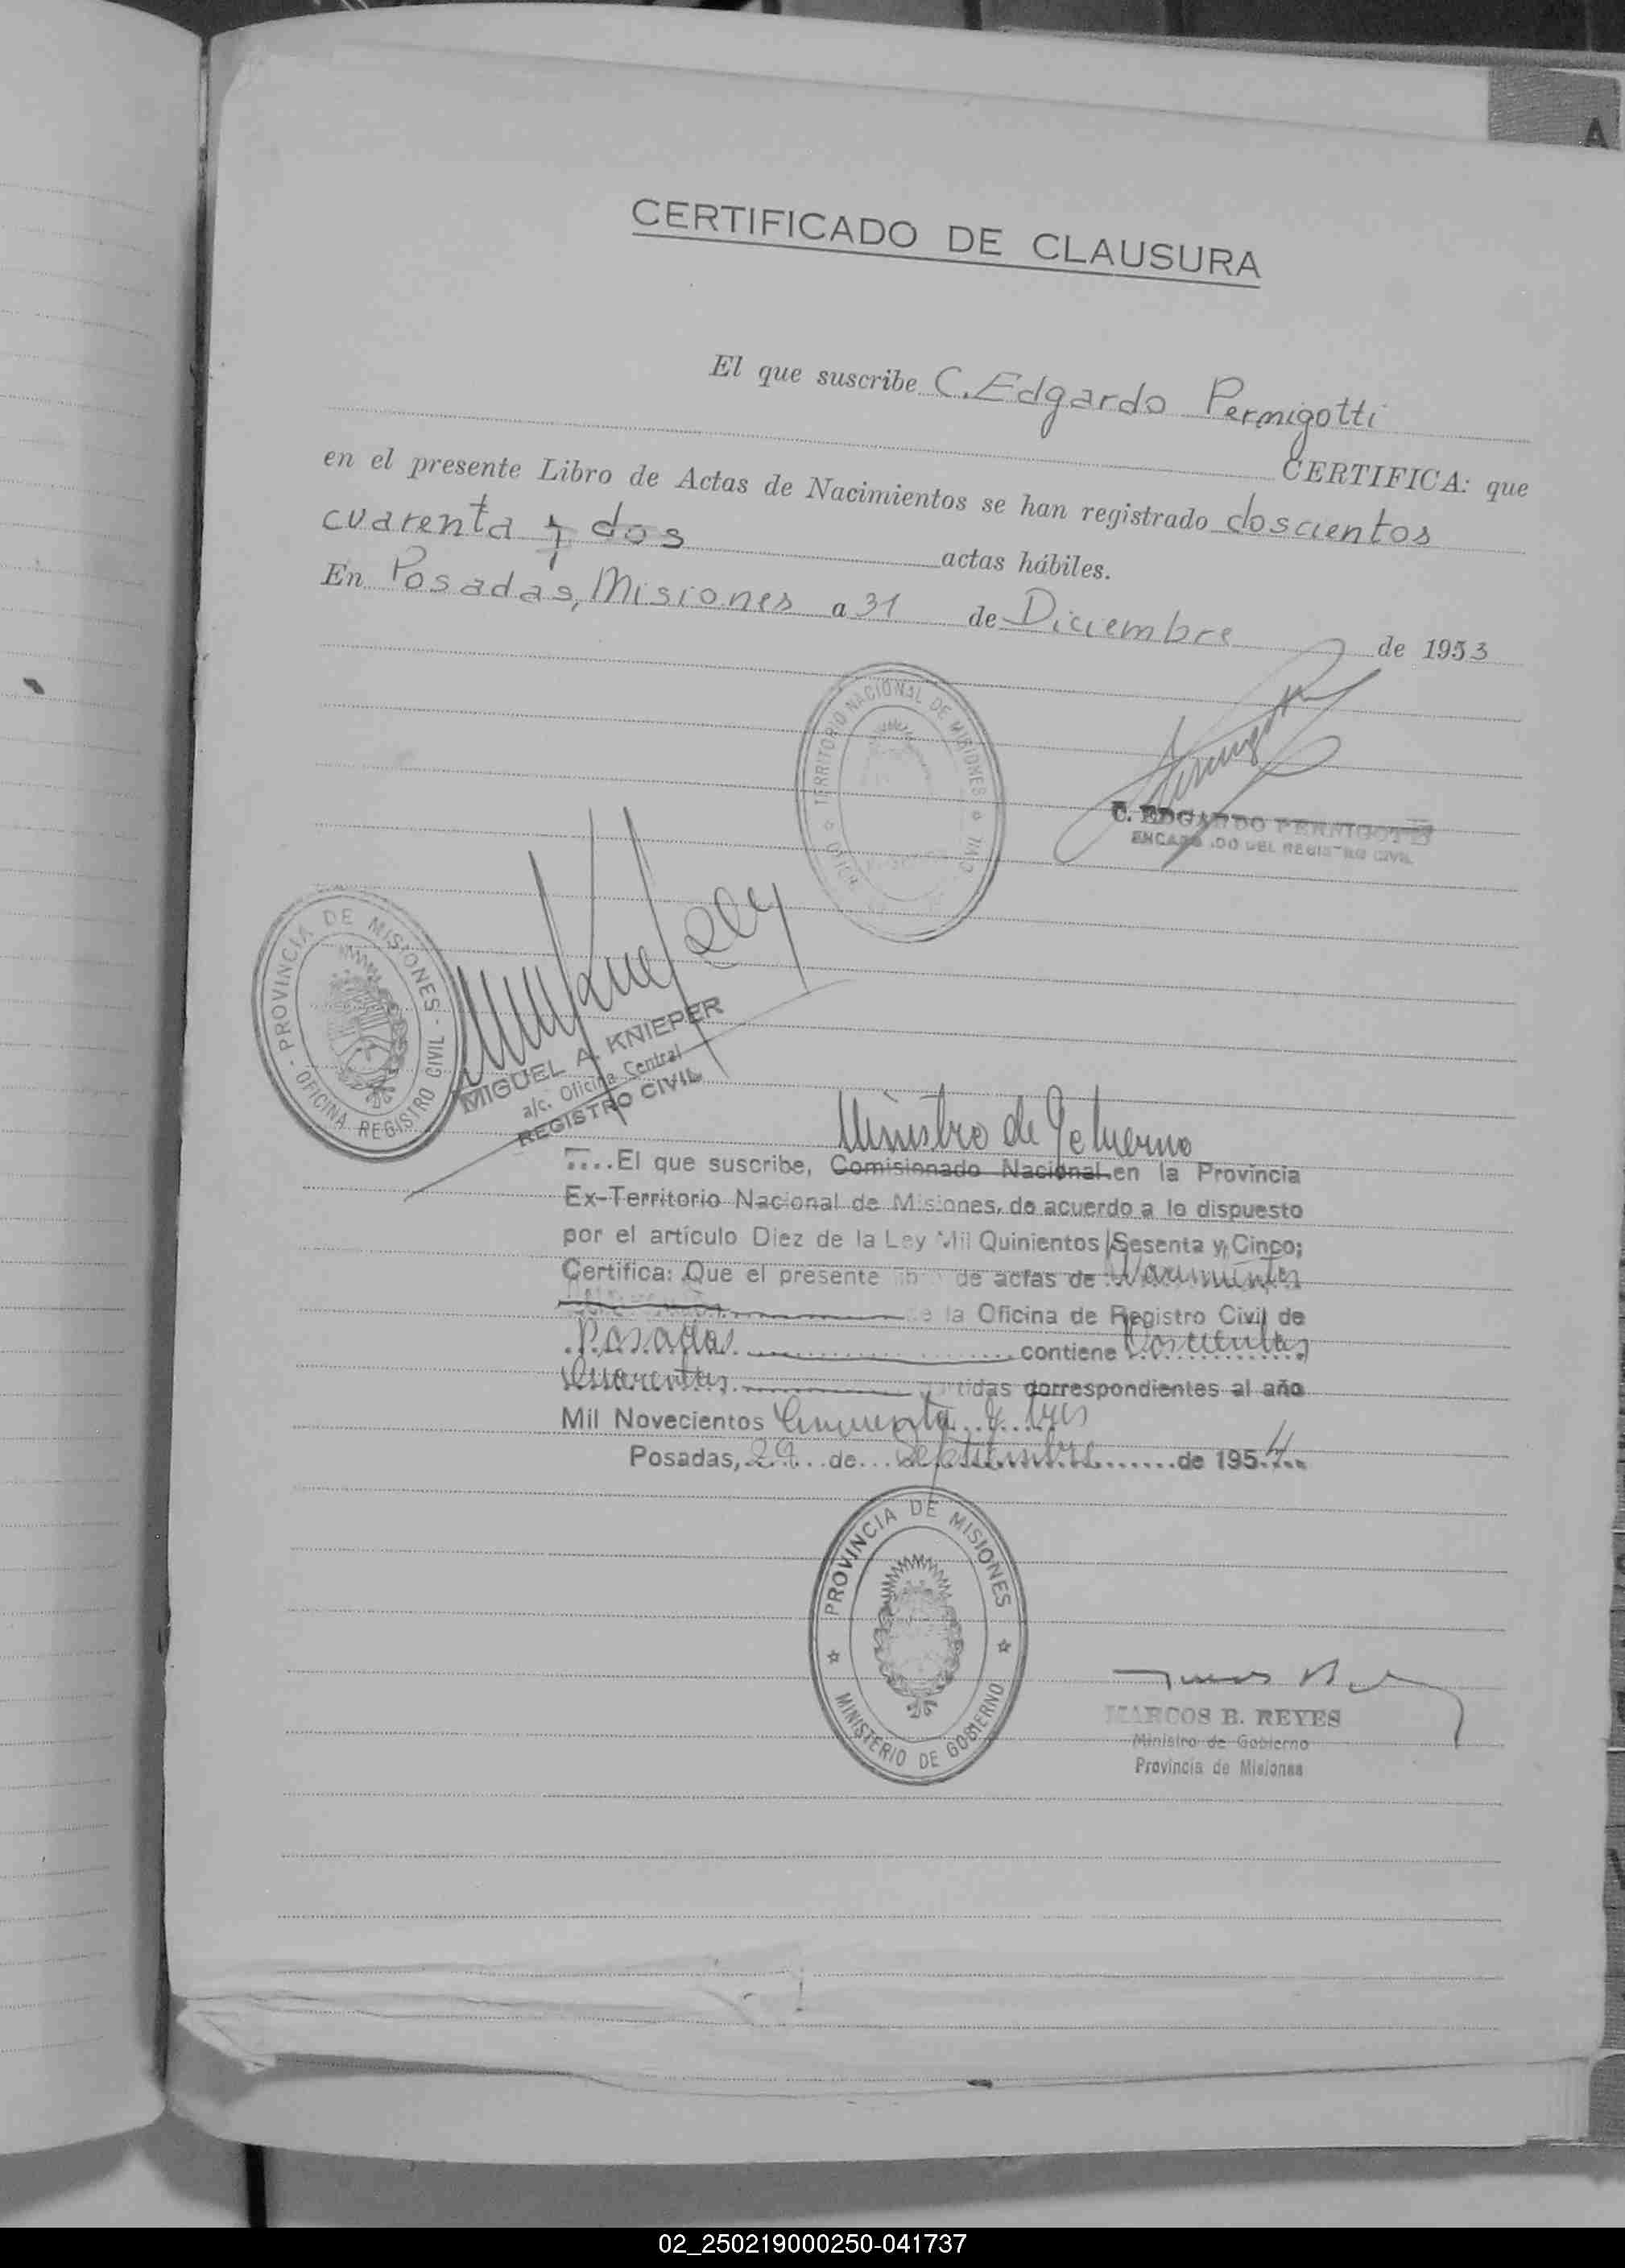 CERTIFICADO DE CLAUSURA
El que suscribe C. Edgardo Permigotti
CERTIFICA: que
en el presente Libro de Actas de Nacimientos se han registrado doscientos
cuarenta y dos actas hábiles.
En Posadas, Misiones a 31 de Diciembre de 1953
TERRITORIO NACIONAL DE MISIONES
C. EDGARDO PERMIGOTTI
ENCARGADO DEL REGISTRO CIVIL
PROVINCIA DE MISIONES - OFICINA REGISTRO CIVIL -
MIGUEL A. KNIEPER
a/c. Oficina Central
REGISTRO CIVIL
Ministro de Gobierno
El que suscribe, Comisionado Nacional en la Provincia
Ex-Territorio Nacional de Misiones, de acuerdo a lo dispuesto
por el artículo Diez de la Ley Mil Quinientos Sesenta y Cinco;
Certifica: Que el presente libro de actas de Nacimientos
de la Oficina de Registro Civil de
Posadas contiene Doscientas
cuarentas partidas correspondientes al año
Mil Novecientos Cincuenta y tres
Posadas, 29 de Septiembre de 1954
PROVINCIA DE MISIONES
MINISTERIO DE GOBIERNO
MARCOS B. REYES
Ministro de Gobierno
Provincia de Misiones
A
02_250219000250-041737